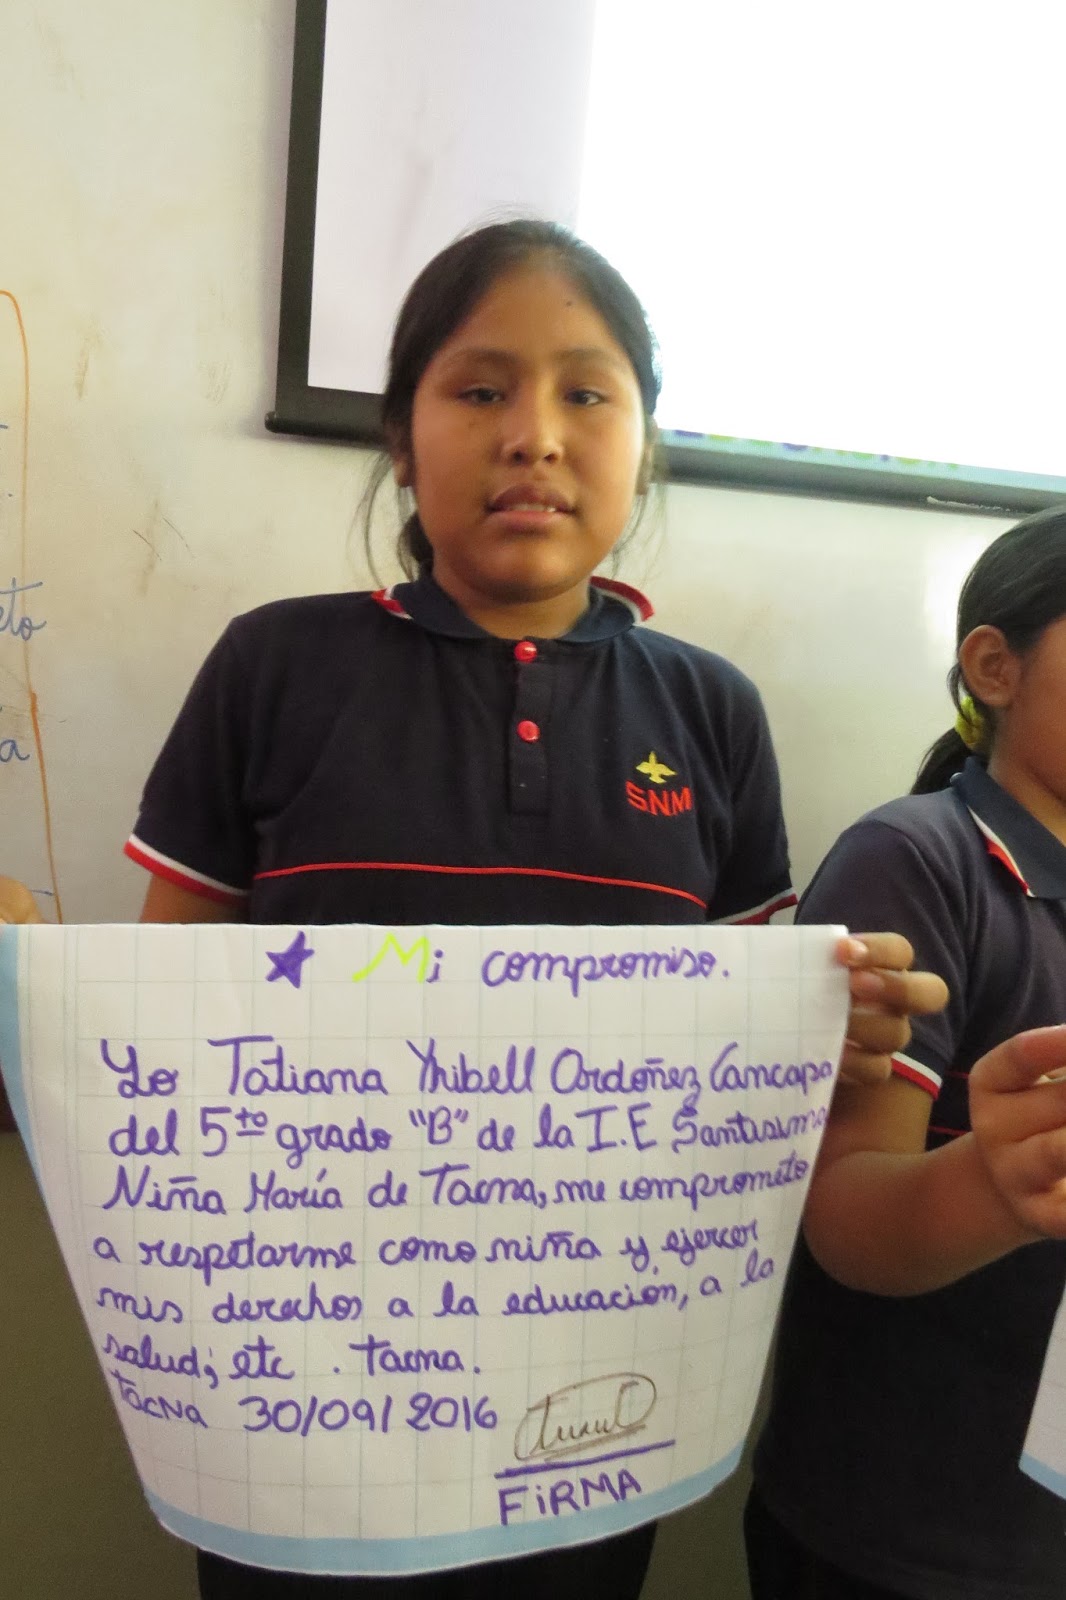 SNM
eto
a
★ Mi compromiso.
Yo Tatiana Yhibell Ordoñez Cancapa
del 5to grado "B" de la I.E Santisima
Niña María de Tacna, me comprometo
a respetarme como niña y ejercer
mis derechos a la educación, a la
salud; etc. Tacna.
Tacna 30/09/2016
FiRMA